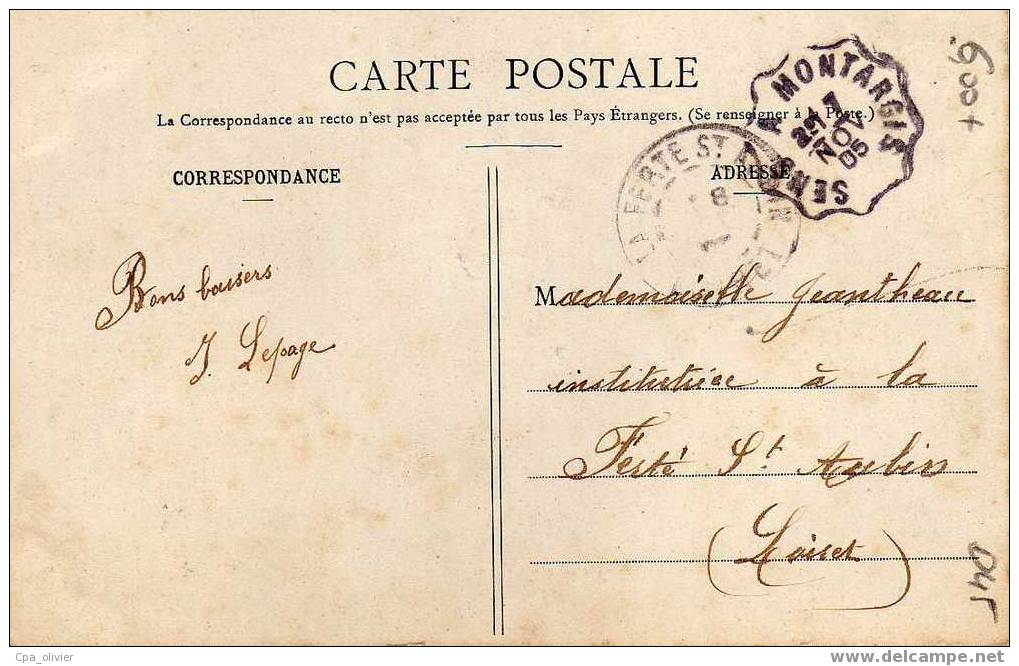 CARTE POSTALE
La Correspondance au recto n'est pas acceptée par tous les Pays Étrangers. (Se renseigner à la Poste.)
CORRESPONDANCE
ADRESSE
SENS A MONTARGIS
25 NOV 05
LA FERTE ST AUBIN
Bons baisers
J. Lepage
Mademoiselle Jeantheau
institutrice à la
Ferté St Aubin
(Loiret)
Cpa_olivier
www.delcampe.net